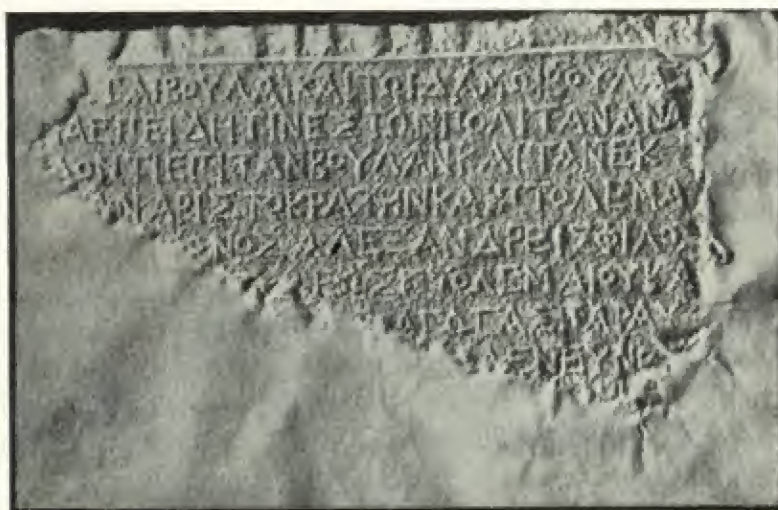 ΤΑΙΒΟΥΛΑΙΚΑΙΤΩΙΔΑΜΩΙΒΟΥΛΑΣ
ΑΕΠΕΙΔΗΤΙΝΕΣΤΩΝΠΟΛΙΤΑΝΑΝΑ
ΔΟΝΤΙΕΠΙΤΑΝΒΟΥΛΑΝΚΑΙΤΑΝΕΚ
ΑΝΑΡΙΣΤΟΚΡΑΤΗΝΚΑΙΠΤΟΛΕΜΑ
ΩΝΟΣΑΛΕΞΑΝΔΡΕΙΣΦΙΛΟ
ΛΕΩΣΠΤΟΛΕΜΑΙΟΥΚΑ
ΑΓΩΓΑΣΠΑΡΑΥ